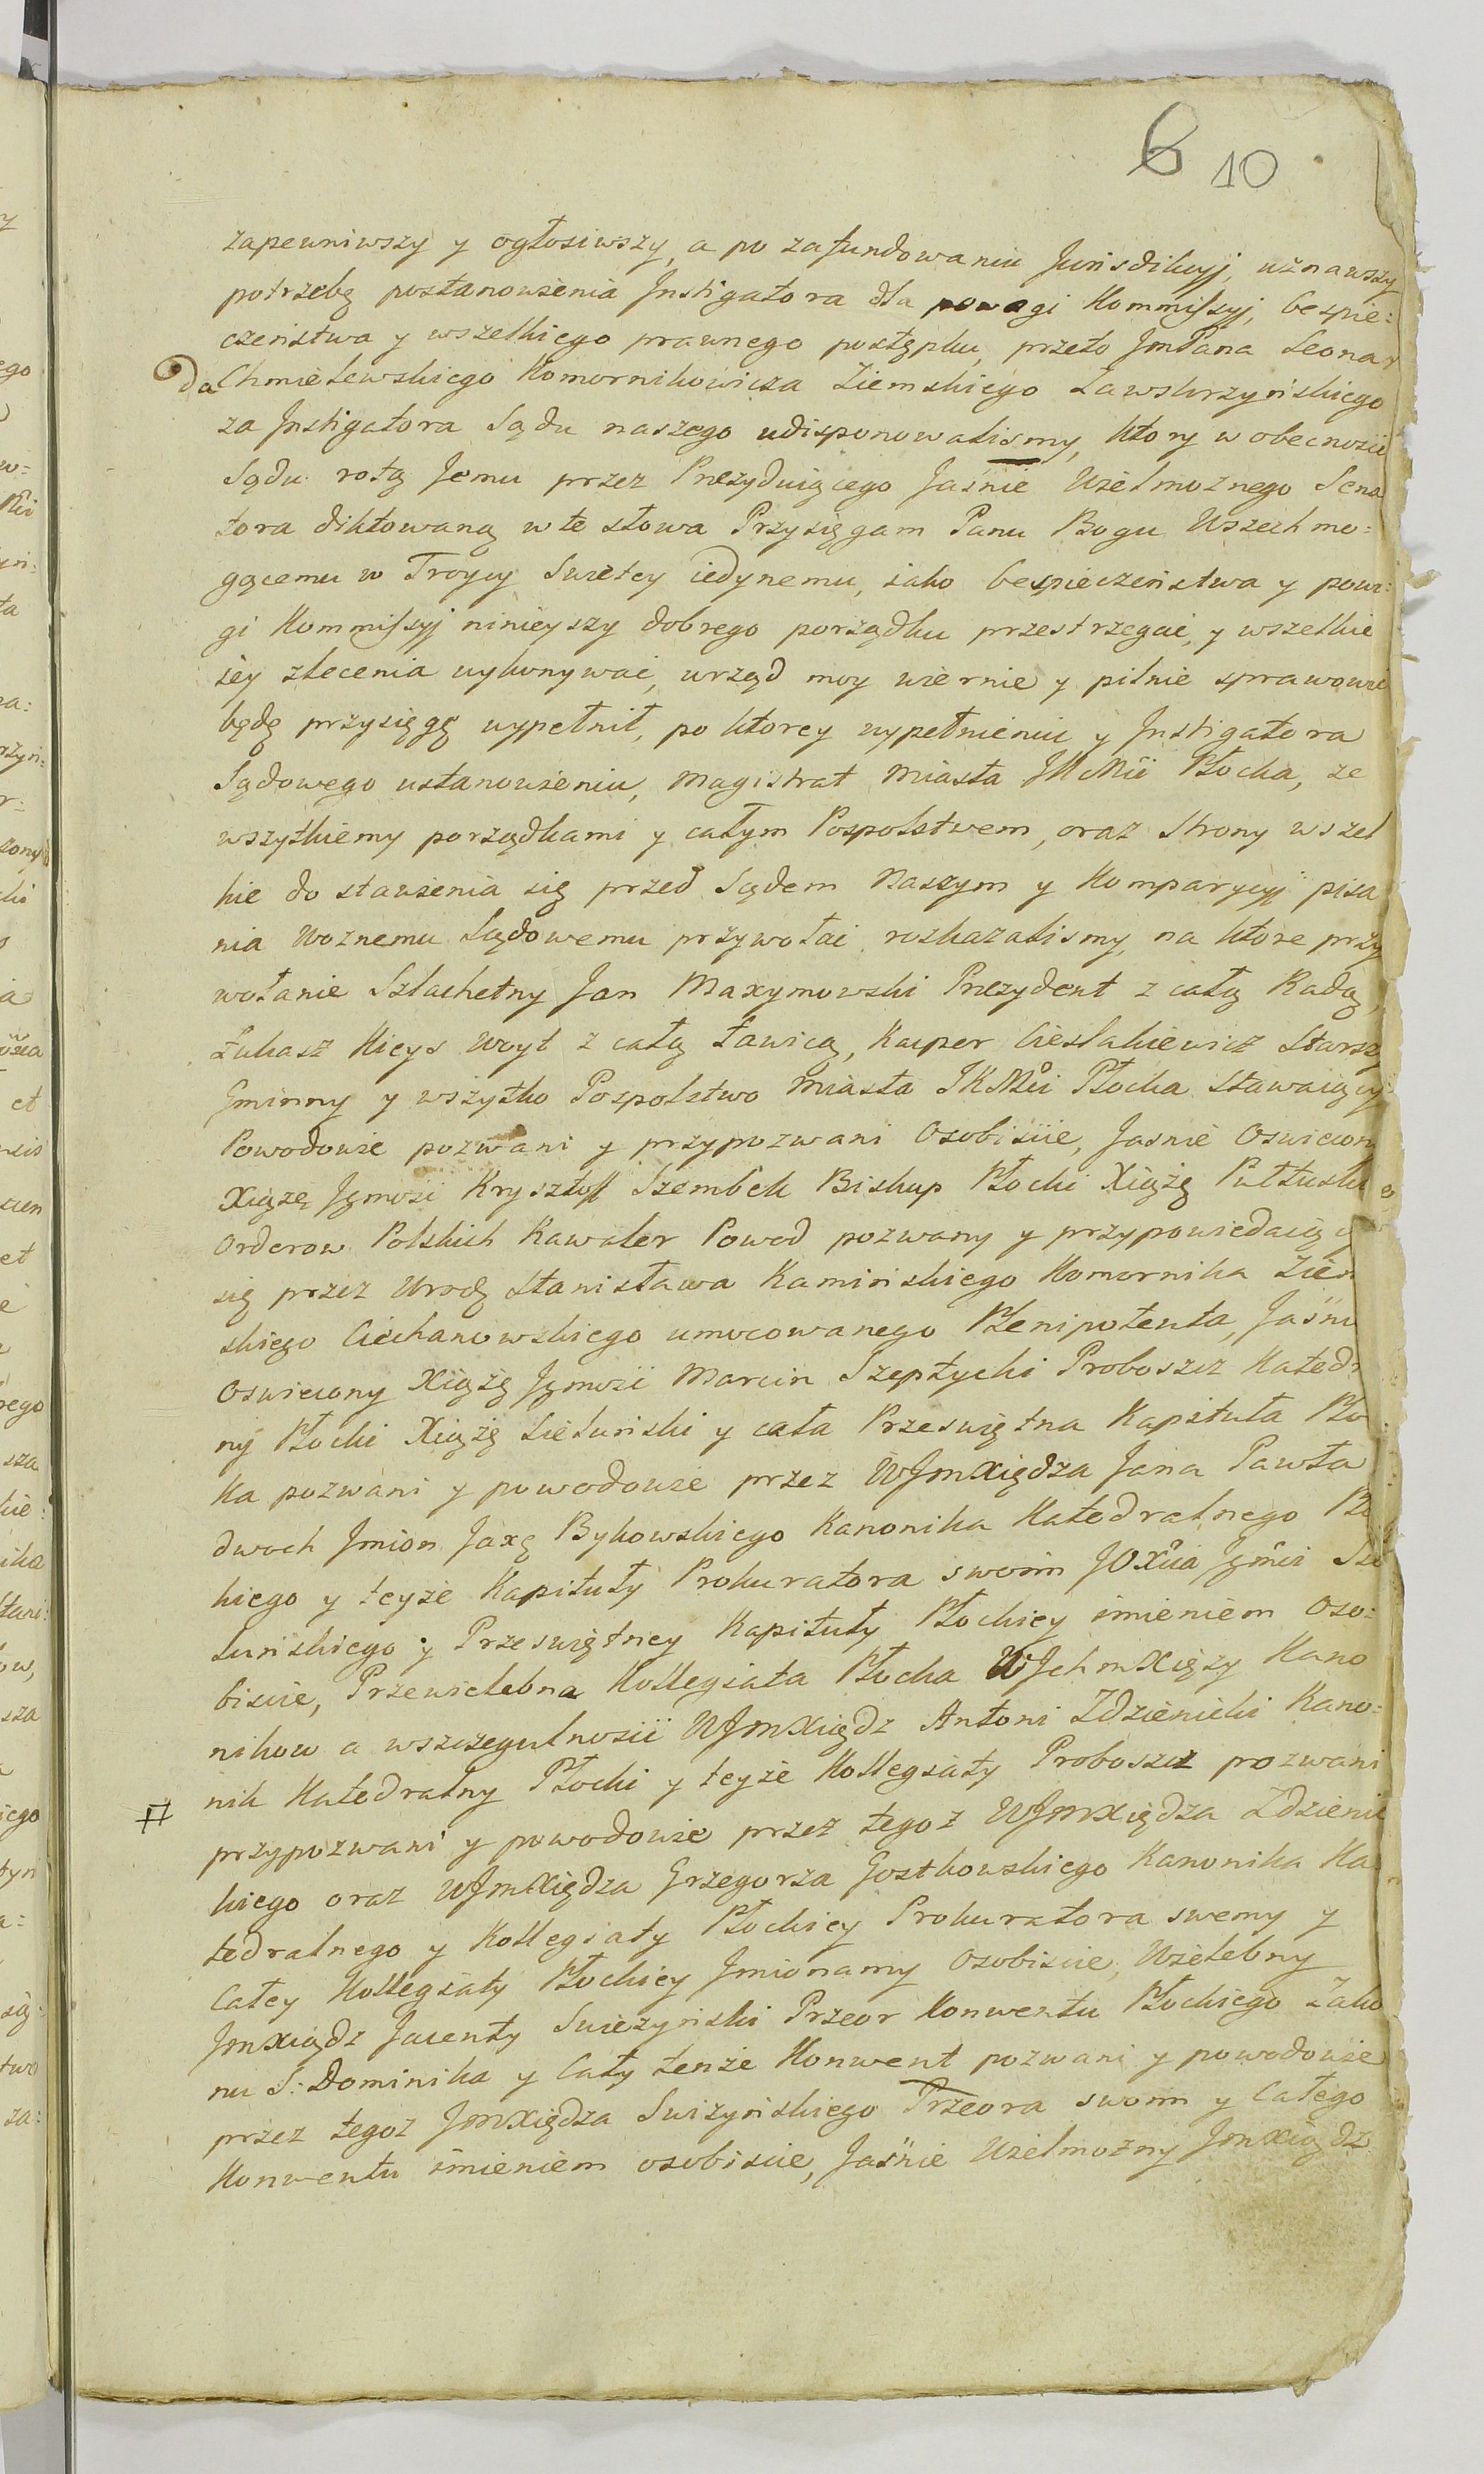 6 10
zapewniwszy y ogłosiwszy, a po zafundowaniu Jurisdikcyj, uznawszy
potrzebę postanowienia Instigatora dla powagi Kommissyj, bespie=
czeństwa y wszelkiego prawnego postępku, przeto JmPana Leonar
da Chmielewskiego Komornikowicza Ziemskiego Zawskrzyńskiego
za Instigatora Sądu naszego udisponowalismy, ktory w obecnosci
Sądu rotą Jemu przez Prezyduiącego Jaśnie Wielmożnego Sena
tora diktowaną w te słowa Przysięgam Panu Bogu Wszechmo=
gącemu w Troycy Swiętey iedynemu, iako bespieczeństwa y powa=
gi Kommissyj ninieyszy dobrego porządku przestrzegać, y wszelkie
iey zlecenia wykonywać, urząd moy wiernie y pilnie sprawować
będę przysięgę wypełnił, po ktorey wypełnieniu y Instigatora
Sądowego ustanowieniu, Magistrat Miasta JKMci Płocka, ze
wszytkiemy porządkami y całym Pospolstwem, oraz Strony wszel
kie do stawienia się przed Sądem Naszym y Komparycyj pisa
nia Woznemu Sądowemu przywołać rozkazalismy, na ktore przy
wołanie Szlachetny Jan Maxymowski Prezydent z całą Radą,
Łukasz Kicys Woyt z całą Ławicą, Kacper Cieslakiewicz Starszy
Gminny y wszytko Pospolstwo Miasta JKMci Płocka Stawaiący
Powodowie pozwani y przypozwani Osobiscie, Jasnie Oswiecony
Xiąże Jgmość Krysztoff Szembek Biskup Płocki Xiąże Pułtuski
Orderow Polskich Kawaler Powod pozwany y przypowiedaiący
się przez Urodz Stanisława Kamińskiego Komornika Ziem
skiego Ciechanowskiego umocowanego Plenipotenta, Jaśnie
Oswiecony Xiąże Jgmość Marcin Szeptycki Proboszcz Katedr
ny Płocki Xiąże Sieluński y cała Przeswiętna Kapituła Płoc
ka pozwani y powodowie przez WJmXiędza Jana Pawła
dwoch Jmion Jaxę Bykowskiego Kanonika Katedralnego Płoc
kiego y teyże Kapituły Prokuratora swoim JOXcia Jgmci Sie
luńskiego y Przeswiętney Kapituły Płockiey imieniem Oso=
biscie, Przewielebna Kollegiata Płocka WJchmXięzy Kano
nikow a wszczegulnosci WJmXiądz Antoni Zdzienicki Kano=
nik Katedralny Płocki y teyże Kollegiaty Proboszcz pozwani
przypozwani y powodowie przez tegoż WJmXiędza Zdzienic
kiego oraz WJmXiędza Grzegorza Gostkowskiego Kanonika Ka
tedralnego y Kollegiaty Płockiey Prokuratora swemy y
Całey Kollegiaty Płockiey Jmionamy Osobiscie, Wielebny
JmXiądz Jacenty Swiezyński Przeor Konwentu Płockiego Zako
nu S: Dominika y Cały tenże Konwent pozwani y powodowie
przez tegoż JmXiędza Swiżyńskiego Przeora swoim y Całego
Konwentu imieniem osobiscie, Jaśnie Wielmożny JmXiądz